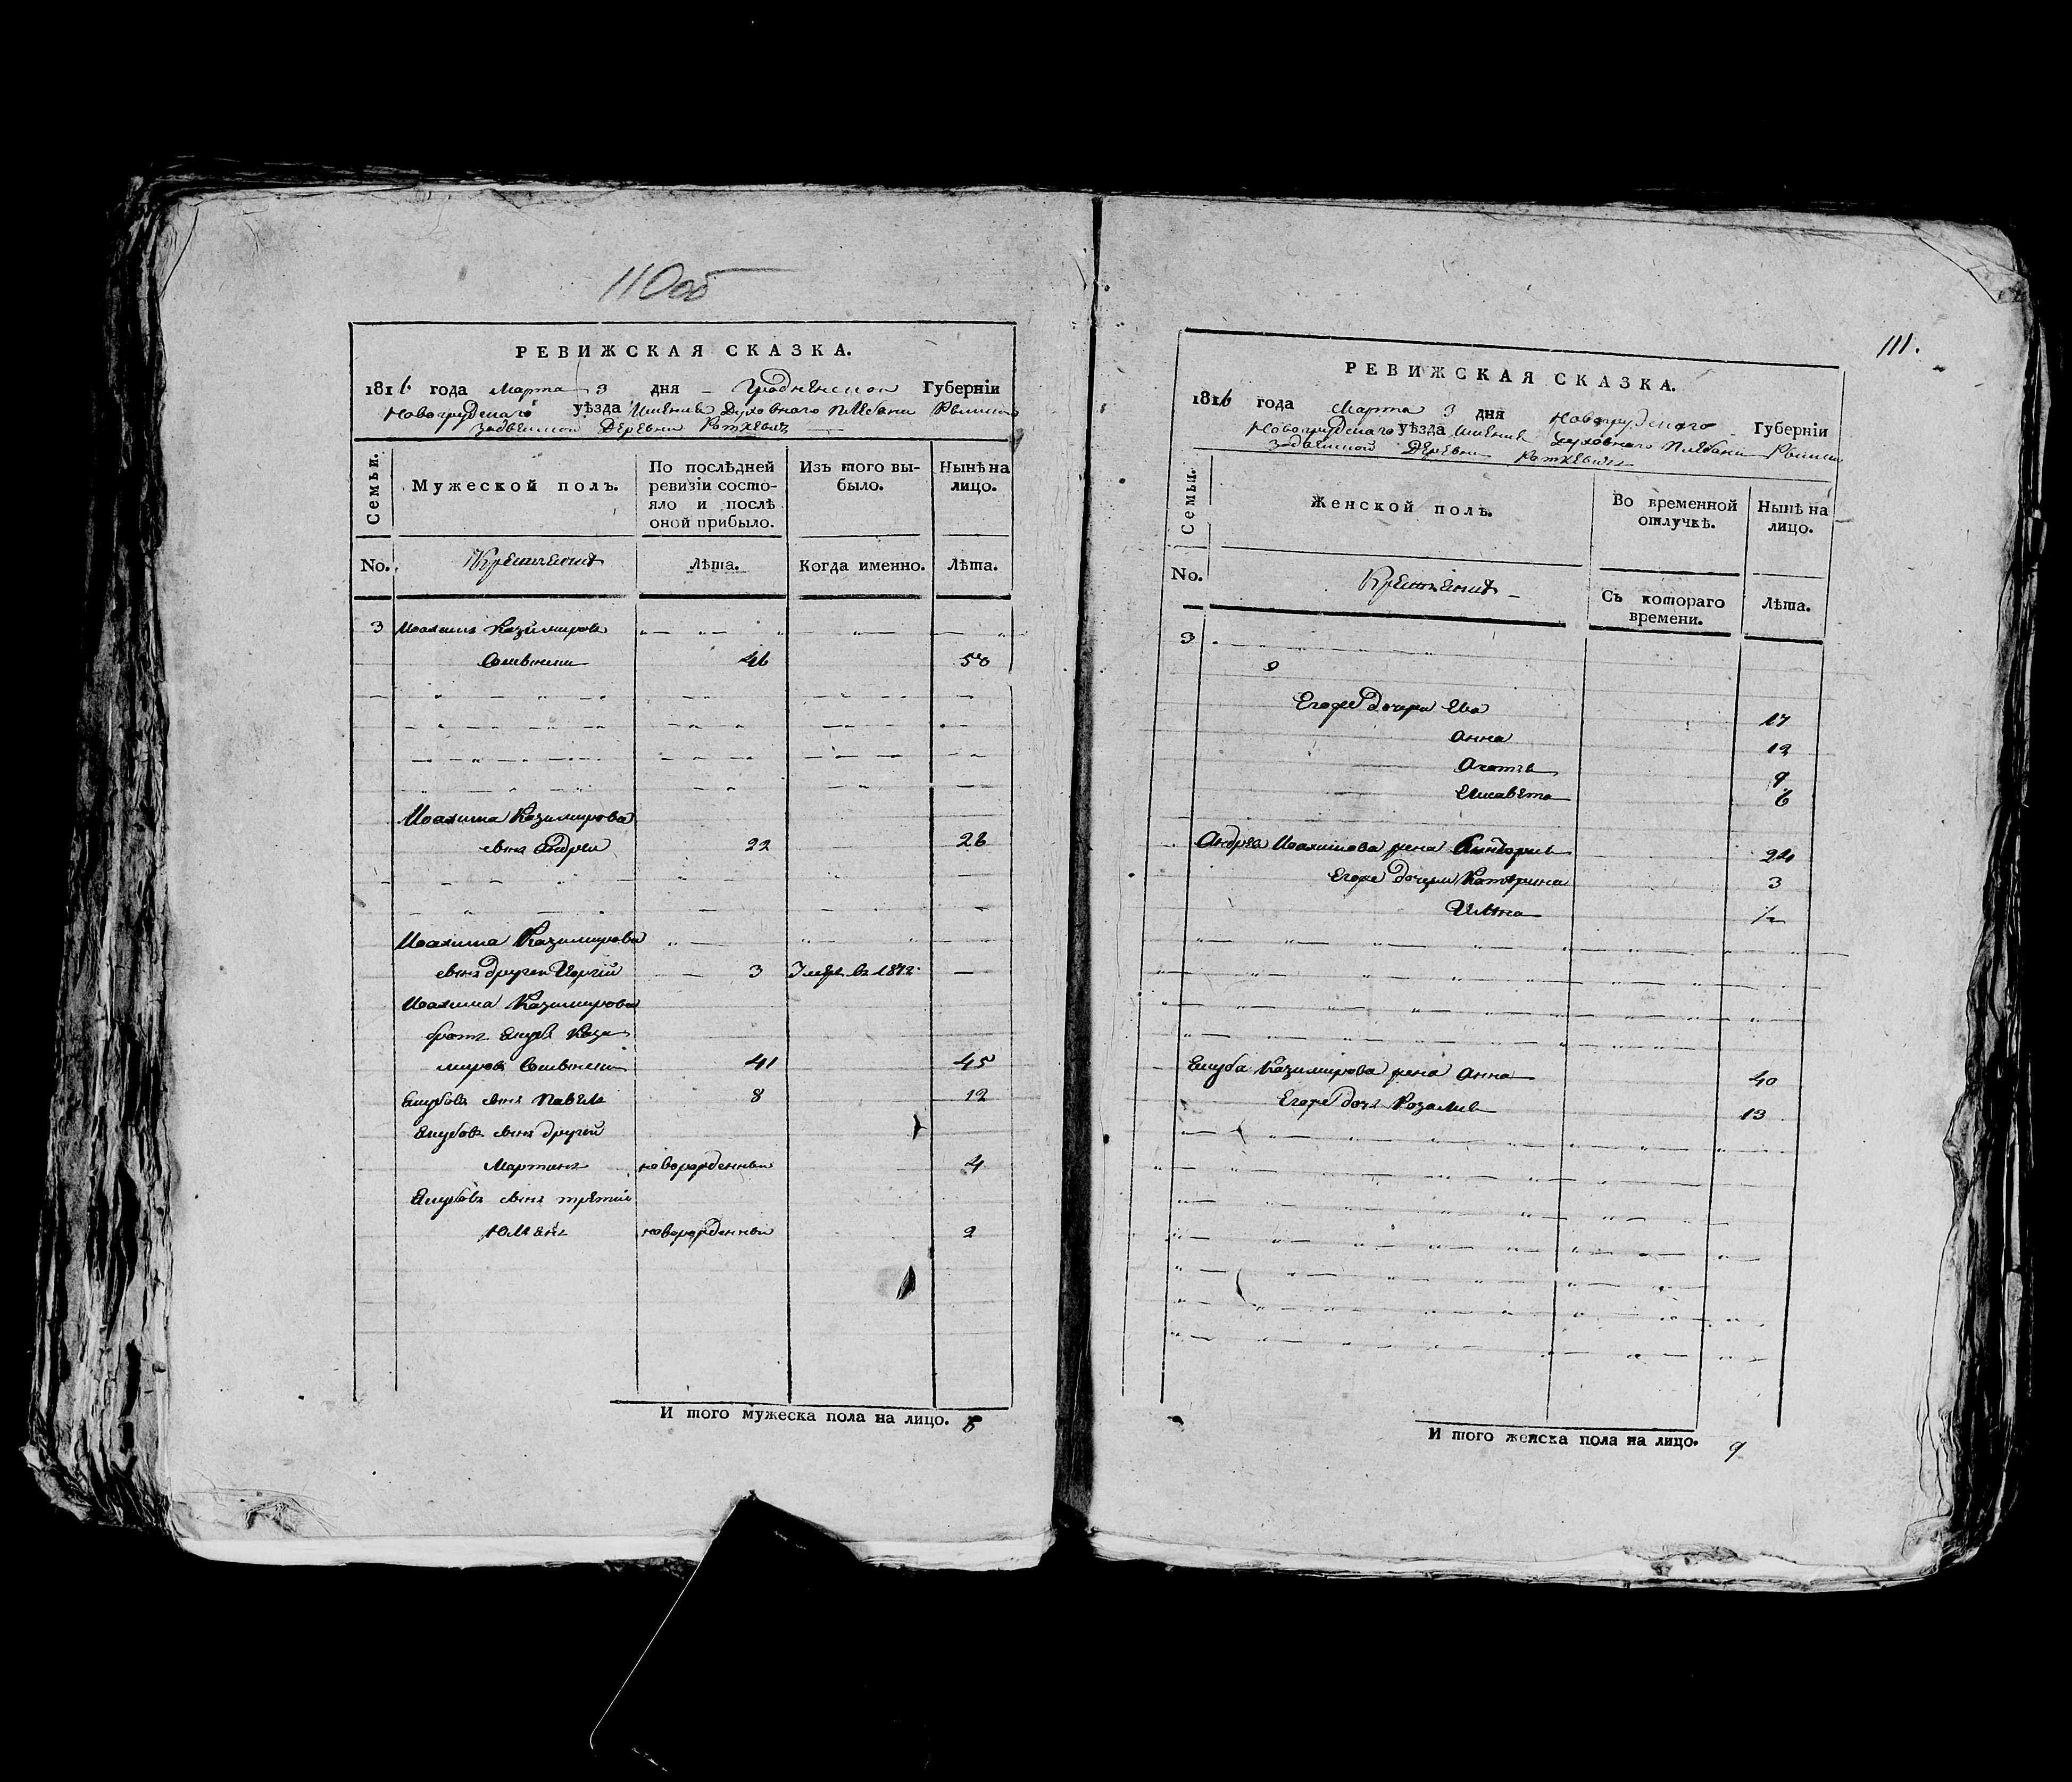 110об
РЕВИЖСКАЯ СКАЗКА.
1816 года Марта 3 дня Гродненской Губерніи
Новогрудскаго уѣзда Имения Духовного Плебании
Деревни
Семьи.
Мужеской полъ.
По послѣдней ревизіи состояло и послѣ оной прибыло.
Изъ того выбыло.
Нынѣ на лицо.
No.
Лѣта.
Когда именно.
Лѣта.
3 Иоахимъ Казимировъ
46 50
Иоахима Казимирова
сынъ Андрей 22 26
Иоахима Казимирова
сынъ другой 3 умре въ 1812
Иоахима Казимирова
братъ Якубъ Кази
мировъ 41 45
Якубовъ сынъ Павелъ 8 12
Якубовъ сынъ другой
Мартинъ новорожденный 4
Якубовъ сынъ третий
Юлианъ новорожденный 2
И того мужеска пола на лицо. 6
111.
РЕВИЖСКАЯ СКАЗКА.
1816 года Марта 3 дня Новогрудскаго Губерніи
Новогрудскаго уѣзда Имения Духовного Плебании
Деревни
Семьи.
Женской полъ.
Во временной отлучкѣ.
Нынѣ на лицо.
No.
Съ котораго времени.
Лѣта.
3
Егоже дочери Ева 17
Анна 12
Агата 9
Елисавета 6
Андрея Иоахимова жена 24
Егоже дочери Катерина 3
½
Якуба Казимирова жена Анна 40
Егоже дочь Розалия 13
И того женска пола на лицо. 9